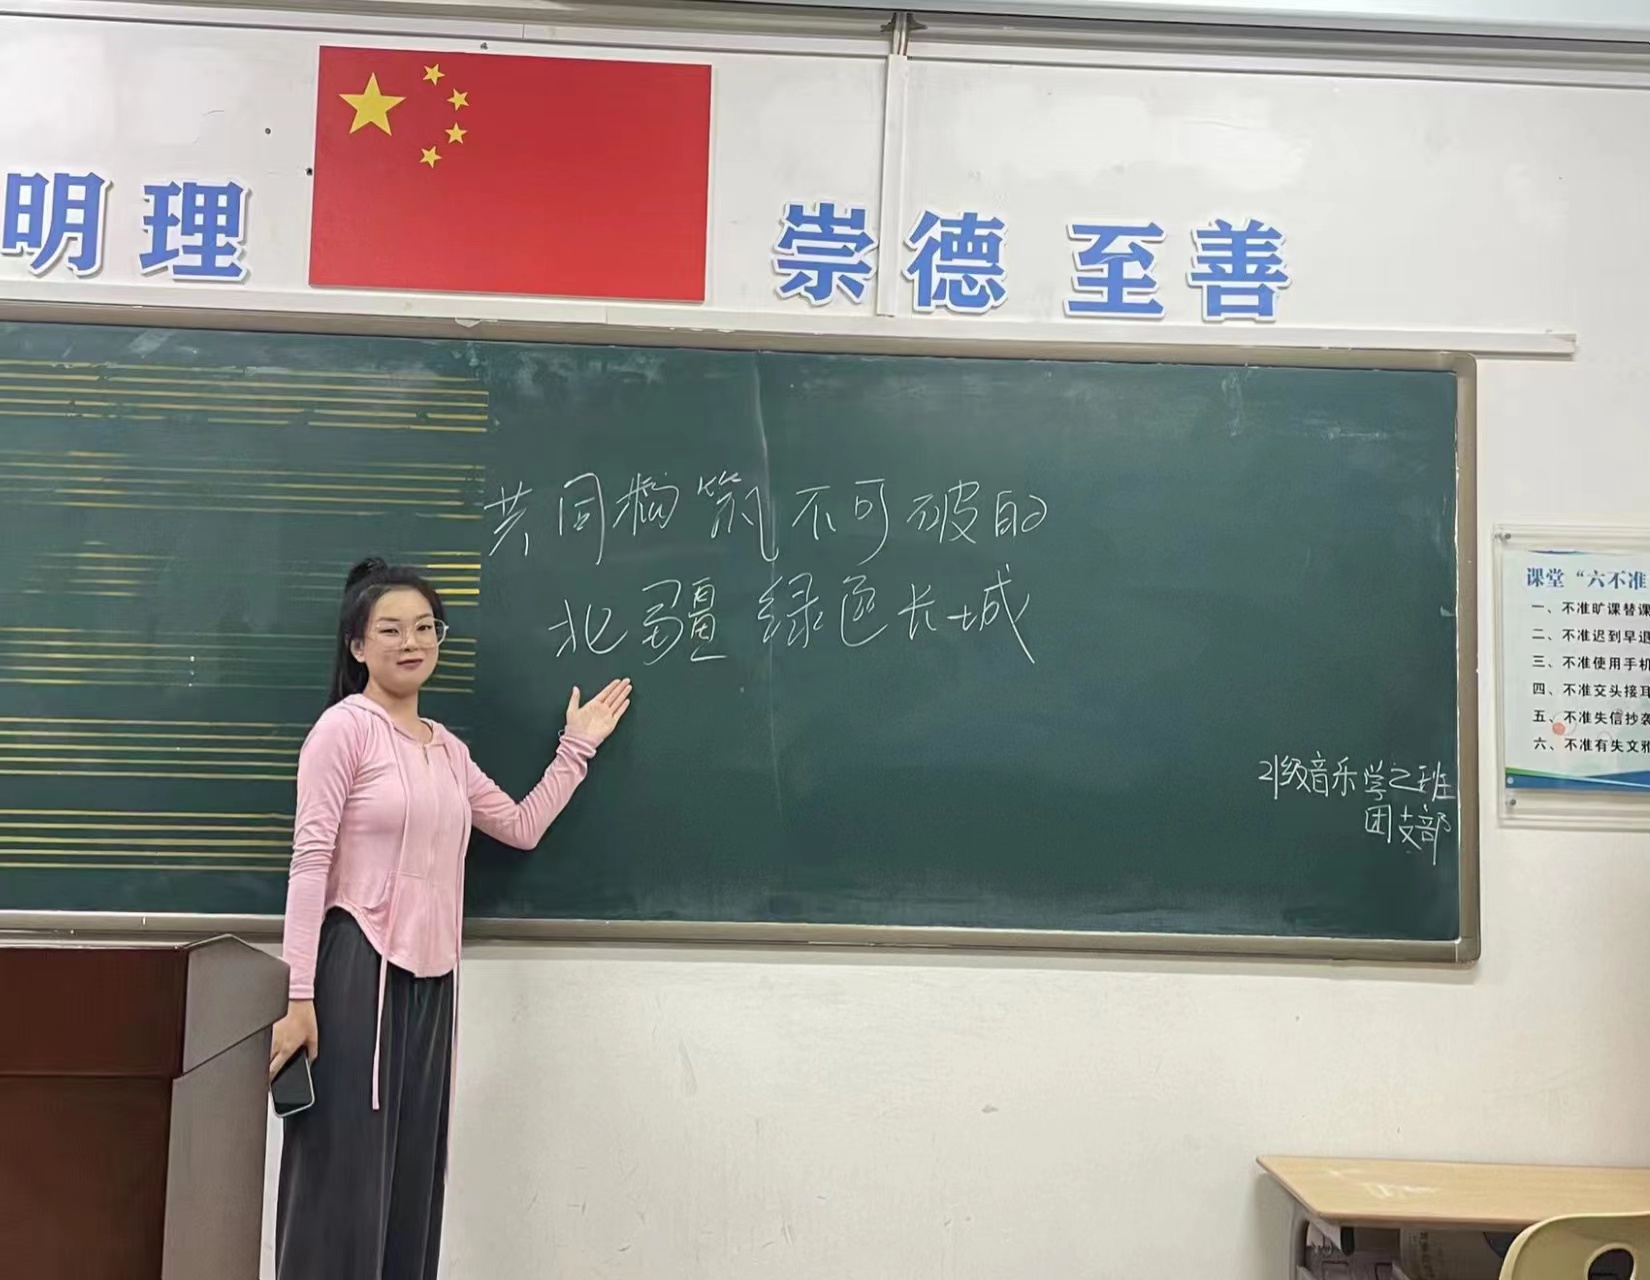 明理 崇德 至善
共同构筑不可破的
北疆绿色长城
21级音乐学2班
团支部
课堂“六不准
一、不准旷课替课
二、不准迟到早退
三、不准使用手机
四、不准交头接耳
五、不准失信抄袭
六、不准有失文雅